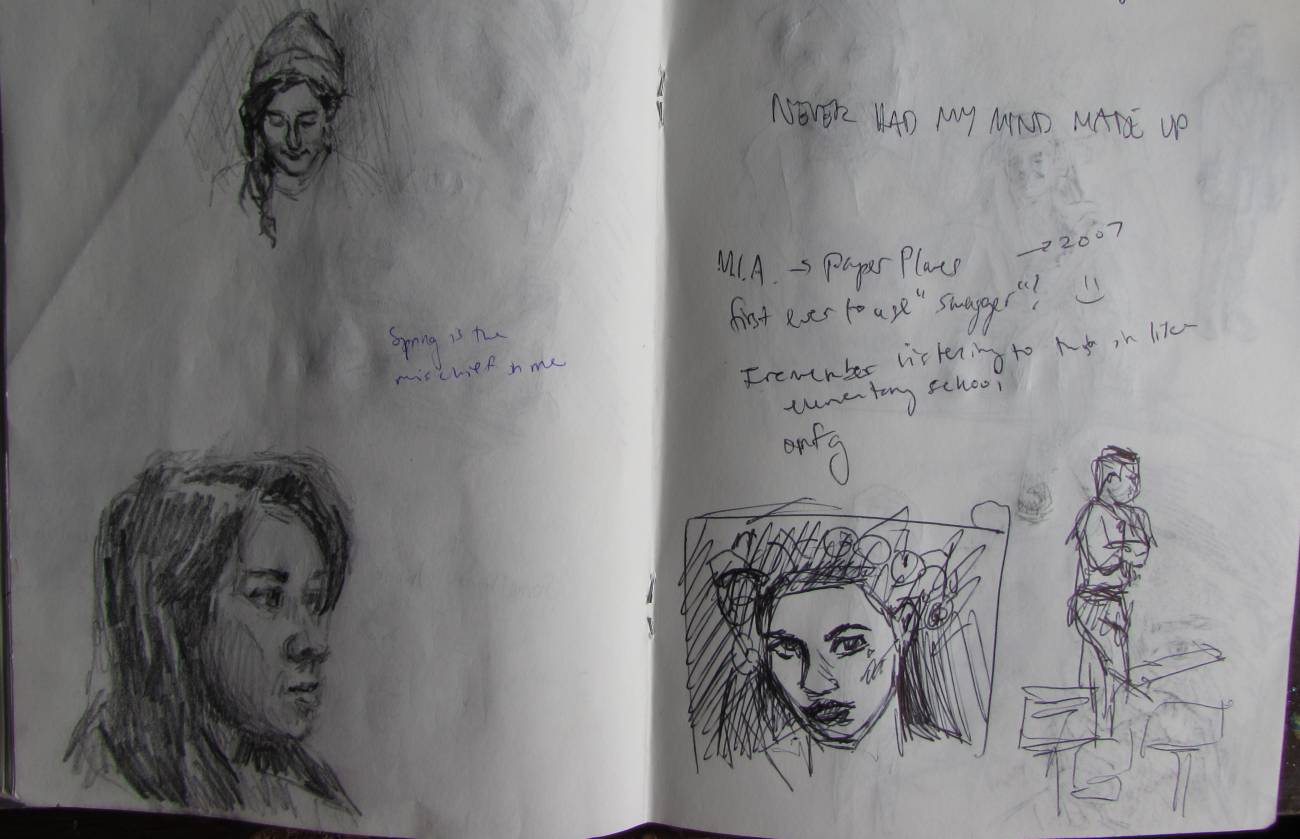 Spring is the
mischief in me
NEVER HAD MY MIND MADE UP
M.I.A. → Paper Planes → 2007
first ever to use "swagger"?
I remember listening to this in like
elementary school
omfg